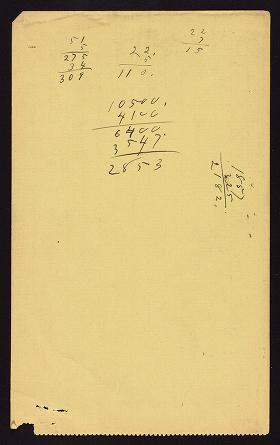 51
5
275
34
309
22.
5
110.
22
7
15
10500.
4100
6400.
3547.
2853
1857
325
2182.